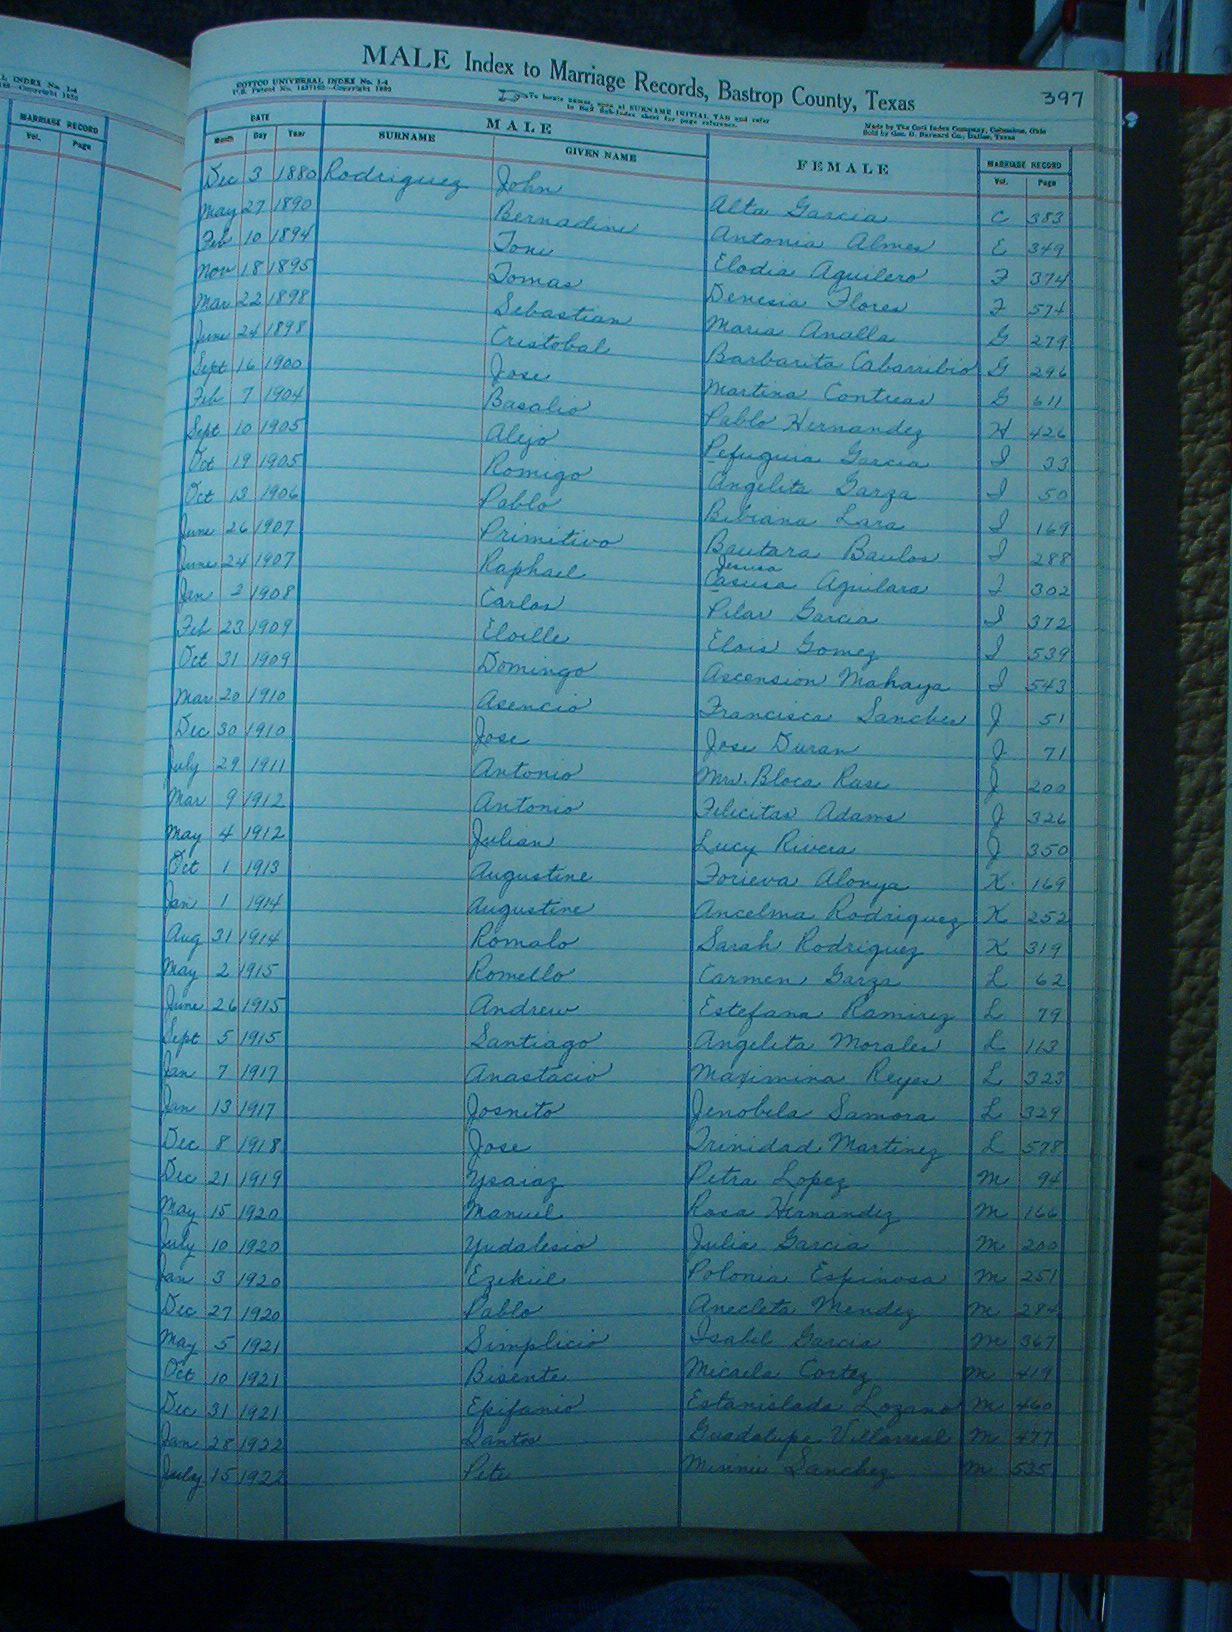 L INDEX No. 1-4
MARRIAGE RECORD
Vol. Page
MALE Index to Marriage Records, Bastrop County, Texas
397
COTTCO UNIVERSAL INDEX No. 1-4
To locate names, open at SURNAME INITIAL TAB and refer
Made by The Cott Index Company, Columbus, Ohio
Sold by Geo. D. Barnard Co., Dallas, Texas
DATE MALE FEMALE MARRIAGE RECORD
Month Day Year SURNAME GIVEN NAME Vol. Page
Dec 3 1880 Rodriguez John Alta Garcia C 383
May 27 1890 Bernadine Antonia Almes E 349
Feb 10 1894 Toni Elodia Aguilero F 374
Nov 18 1895 Tomas Denesia Flores F 574
Mar 22 1898 Sebastian Maria Analla G 279
June 24 1898 Cristobal Barbarita Cabarribio G 296
Sept 16 1900 Jose Martina Contreas G 611
Feb 7 1904 Basalio Pablo Hernandez H 426
Sept 10 1905 Alejo Pefuguia Garcia I 33
Oct 19 1905 Romigo Angelita Garza I 50
Oct 13 1906 Pablo Bibiana Lara I 169
June 26 1907 Primitivo Bautara Baulos I 288
Jesusa
June 24 1907 Raphael Casusa Aguilara I 302
Jan 2 1908 Carlos Pilar Garcia I 372
Feb 23 1909 Eloille Elois Gomez I 539
Oct 31 1909 Domingo Ascension Mahaya I 543
Mar 20 1910 Asencio Francisca Sanches J 51
Dec 30 1910 Jose Jose Duran J 71
July 29 1911 Antonio Mrs. Bloca Rase J 200
Mar 9 1912 Antonio Felicitas Adams J 326
May 4 1912 Julian Lucy Rivera J 350
Oct 1 1913 Augustine Forieva Alonya K 169
Jan 1 1914 Augustine Ancelma Rodriguez K 252
Aug 31 1914 Romalo Sarah Rodriguez K 319
May 2 1915 Romello Carmen Garza L 62
June 26 1915 Andrew Estefana Ramirez L 79
Sept 5 1915 Santiago Angelita Morales L 113
Jan 7 1917 Anastacio Maximina Reyes L 323
Jan 13 1917 Josnito Jenobela Samora L 329
Dec 8 1918 Jose Trinidad Martinez L 578
Dec 21 1919 Ysaiaz Petra Lopez M 94
May 15 1920 Manuel Rosa Hernandez M 166
July 10 1920 Yudalesio Julia Garcia M 200
Jan 3 1920 Ezekiel Polonia Espinosa M 251
Dec 27 1920 Pablo Anecleta Mendez M 284
May 5 1921 Simplicio Isabel Garcia M 367
Oct 10 1921 Bisente Micaela Cortez M 419
Dec 31 1921 Epifanio Estanislada Lozano M 460
Jan 28 1922 Santos Guadalupe Villarreal M 477
July 15 1922 Pete Minnie Sanchez M 535